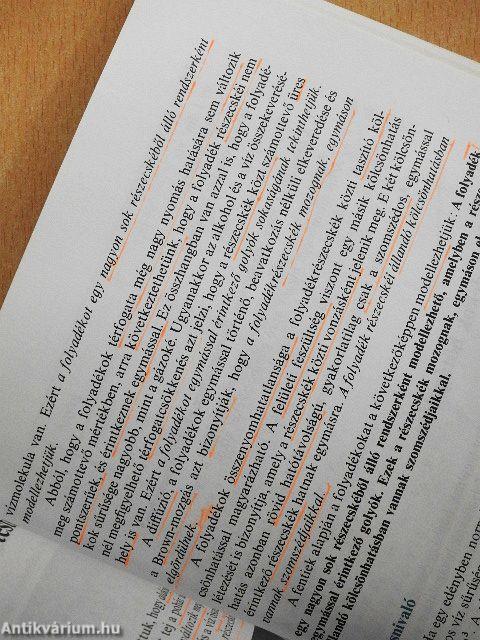 vízmolekula van. Ezért a folyadékot egy nagyon sok részecskéből álló rendszerként
modellezhetjük.
Abból, hogy a folyadékok térfogata még nagy nyomás hatására sem változik
meg számottevő mértékben, arra következtethetünk, hogy a folyadék részecskéi nem
pontszerűek és érintkeznek egymással. Ez összhangban van azzal is, hogy a folyadé-
kok sűrűsége nagyobb, mint a gázoké. Ugyanakkor az alkohol és a víz összekeverésé-
nél megfigyelhető térfogatcsökkenés azt jelzi, hogy a részecskék közt számottevő üres
hely is van. Ezért a folyadékot egymással érintkező golyók sokaságának tekinthetjük.
A diffúzió, a folyadékok egymással történő, beavatkozás nélküli elkeveredése és
a Brown-mozgás azt bizonyítják, hogy a folyadékrészecskék mozognak, egymáson
elgördülnek.
A folyadékok összenyomhatatlansága a folyadékrészecskék közti taszító köl-
csönhatással magyarázható. A felületi feszültség viszont egy másik kölcsönhatás
létezését is bizonyítja, amely a részecskék közti vonzásként jelenik meg. E két kölcsön-
hatás azonban rövid hatótávolságú, gyakorlatilag csak a szomszédos, egymással
érintkező részecskék hatnak egymásra. A folyadék részecskéi állandó kölcsönhatásban
vannak szomszédjaikkal.
A fentiek alapján a folyadékokat a következőképpen modellezhetjük: A folyadék
egy nagyon sok részecskéből álló rendszerként modellezhető, amelyben a része
mással érintkező golyók. Ezek a részecskék mozognak, egymáson el
landó kölcsönhatásban vannak szomszédjaikkal.
egy edényben norm
Antikvárium.hu